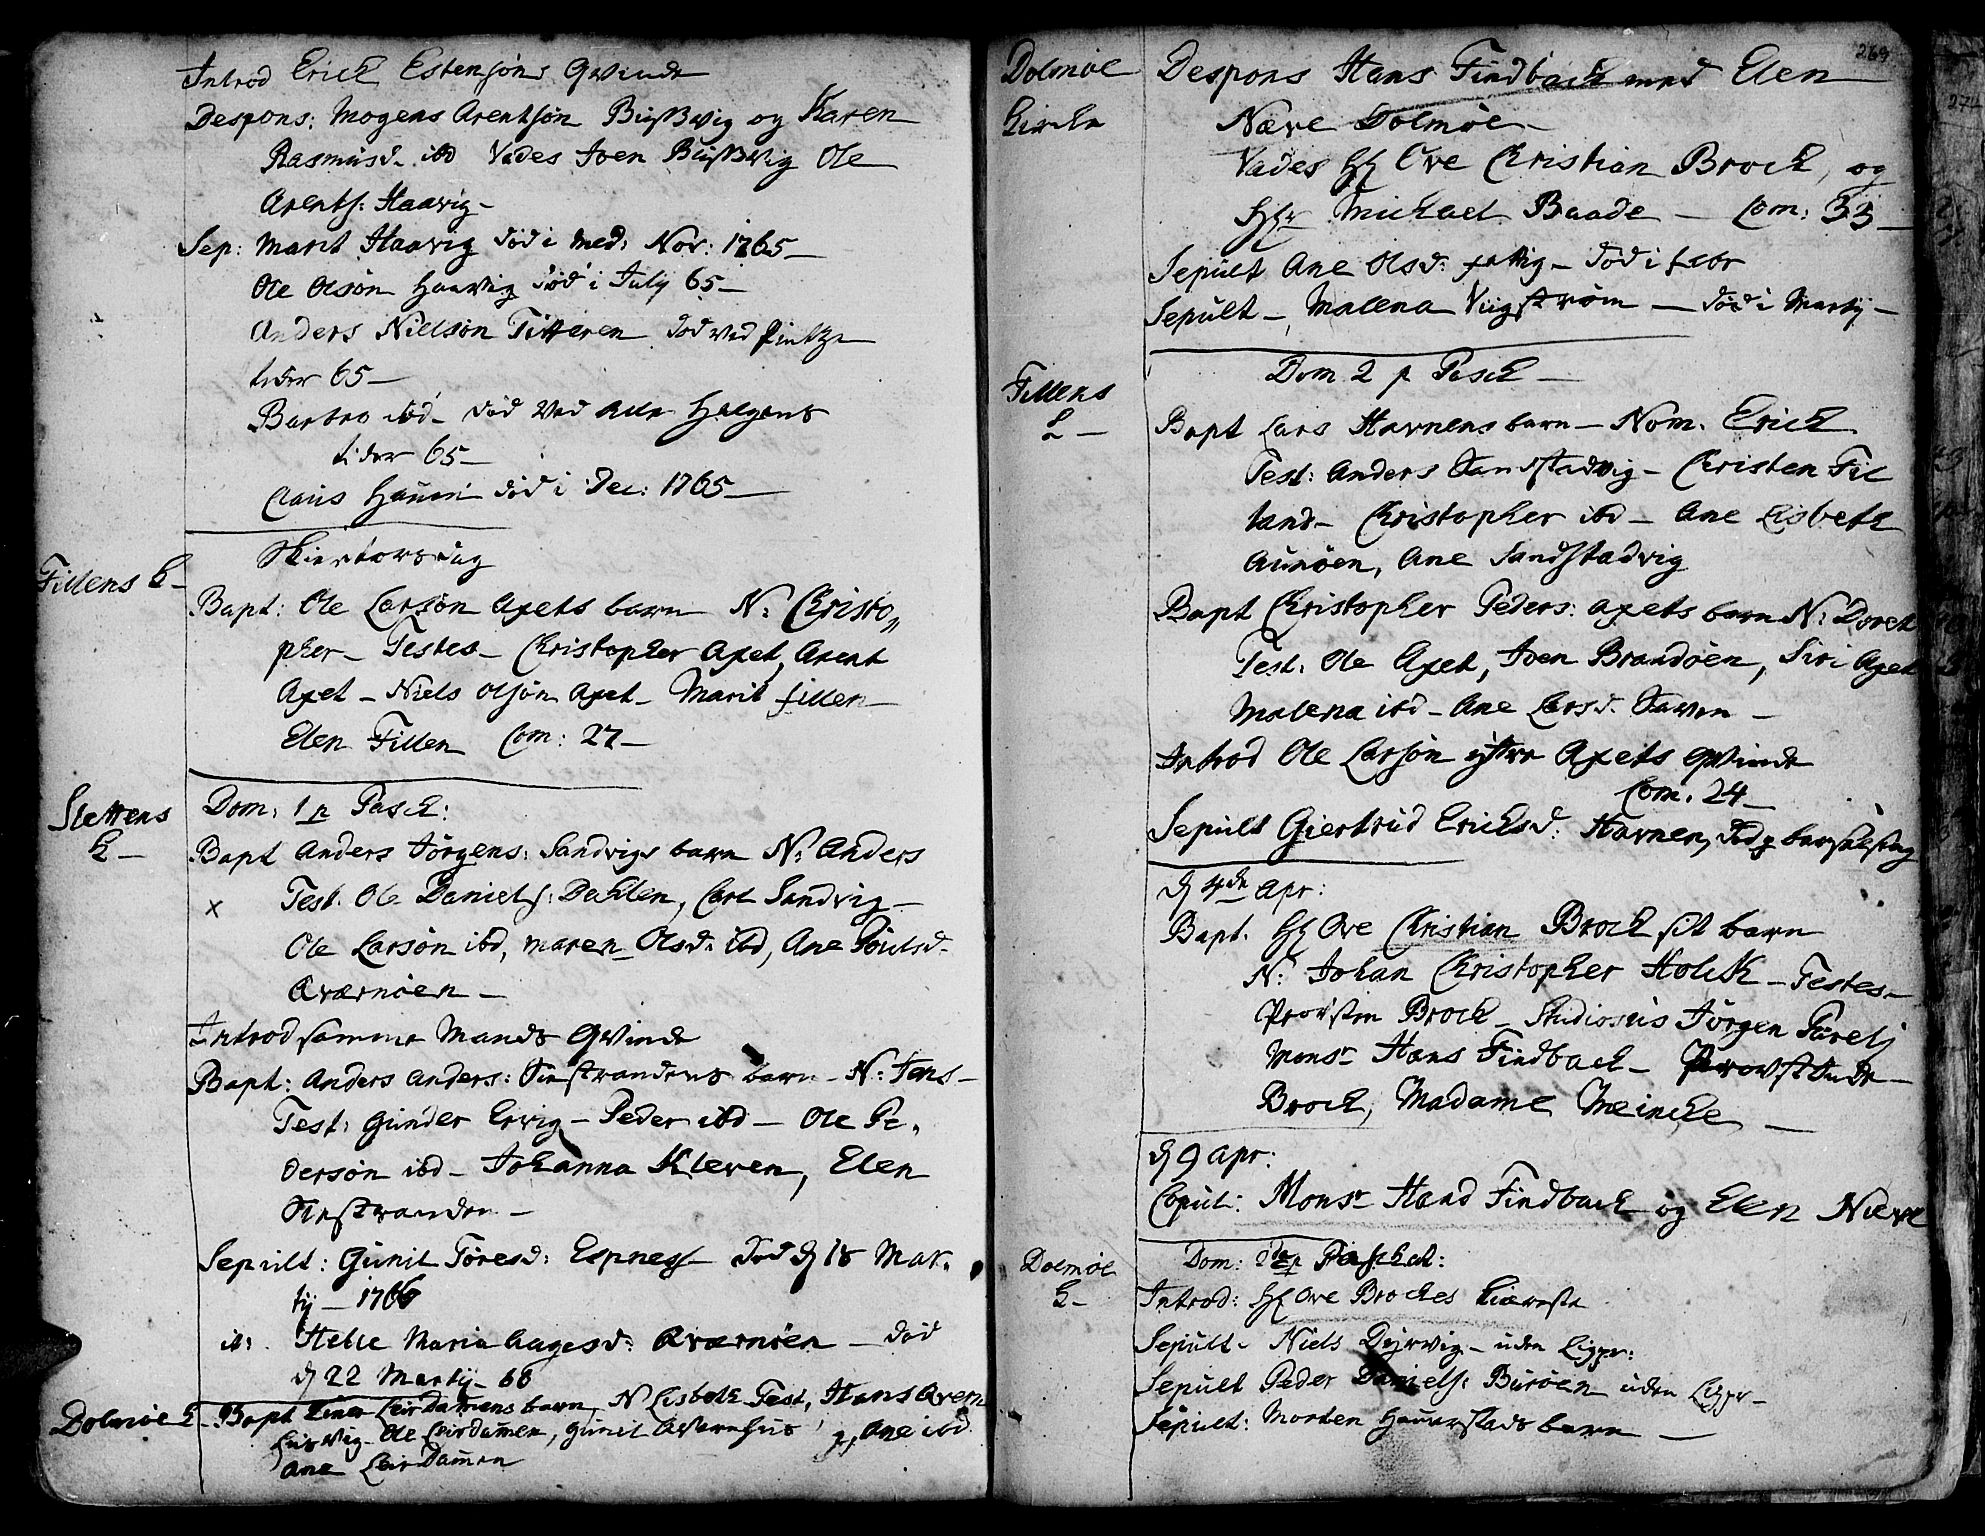 Introd Erich Estensøns Qvinde
Despons: Mogens Arentsøn Biugvig og Karen
Rasmusd. ibd Vades Joen Biugvig Ole
Arents: Haavig
Sep: Marit Haavig død i Med: Nov: 1765
Ole Olsøn Haavig død i July 65
Anders Nielsøn Titteren død ved Pintze
tider 65
Barbro ibd død ved alle Helgens
tider 65
Claus død i Dec: 1765
Fillens K
Skiertorsdag
Bapt: Ole Larsøn Axets barn N: Christo„
pher Testes Christopher Axet, Arent
Axet Niels Olsøn Axet Marit Fillen
Elen Fillen Com: 27
Slettens K
Dom: 1 p Pasch:
Bapt Anders Jørgens: Sandvigs barn N: Anders
x Test. Ole Daniels: Dahlen, Carl Sandvig
Ole Larsøn ibd, Maren Olsd: ibd, Ane Poulsd
Qværnøen
Introd samme Mands Qvinde
Bapt: Anders Anders: barn N: Jens
Test: Gunder Ervig Peder ibd Ole Pe,
dersøn ibd Johanna Kleven, Elen
Sepult: Gunil Toresd: Espnes død d 18 Mar,
tij 1766
it: Helle Maria Aagesd: Qværnøen død
d 22 Martij 66
Dolmøe K Bapt Einer Leirdamens barn N Lisbeth Test, Hans Qven
Ole Leirdamen, Gunil , Ane ibd
Ane Leirdamen
269
Dolmøe Kirche
Despons Hans Findbach med Elen
Næve Dolmøe
Vades Hr Ove Christian Broch, og
Hr Michael Baade Com: 33
Sepult Ane Olsd: fattig død i febr
Sepult Malena Vigstrøm død i Martij
Fillens K
Dom 2 p Pasch
Bapt Lars Havnens barn Nom. Erich
Test: Anders Sandstadvig Christen Fil
land Christopher ibd Ane Lisbeth
Aunøen, Ane Sandstadvig
Bapt Christopher Peders: Axets barn N: Doret
Test: Ole Axet, Joen Brandøen, Siri Axet
Malena ibd Ane Larsd.
Introd Ole Larsøn yttre Axets Qvinde
Com. 24
Sepult Giertrud Erichsd: Havnen, død barselseng
d 4de Apr:
Bapt. Hr Ove Christian Broch sit barn
N: Johan Christopher Holck Testes
Provsten Broch Studiosus Jørgen Parelj
Monsr Hans Findbach Provstinde
Broch, Madame Meincke
d 9 Apr:
Copul: Monsr Hans Findbach og Elen Næve
Dolmøe K
Dom: p Paschat:
Introd: Hr Ove Broches Kiæreste
Sepult Niels Dyrvig uden Ligpr:
Sepult Peder Daniels: Burøen uden Ligpr
Sepult: Morten barn